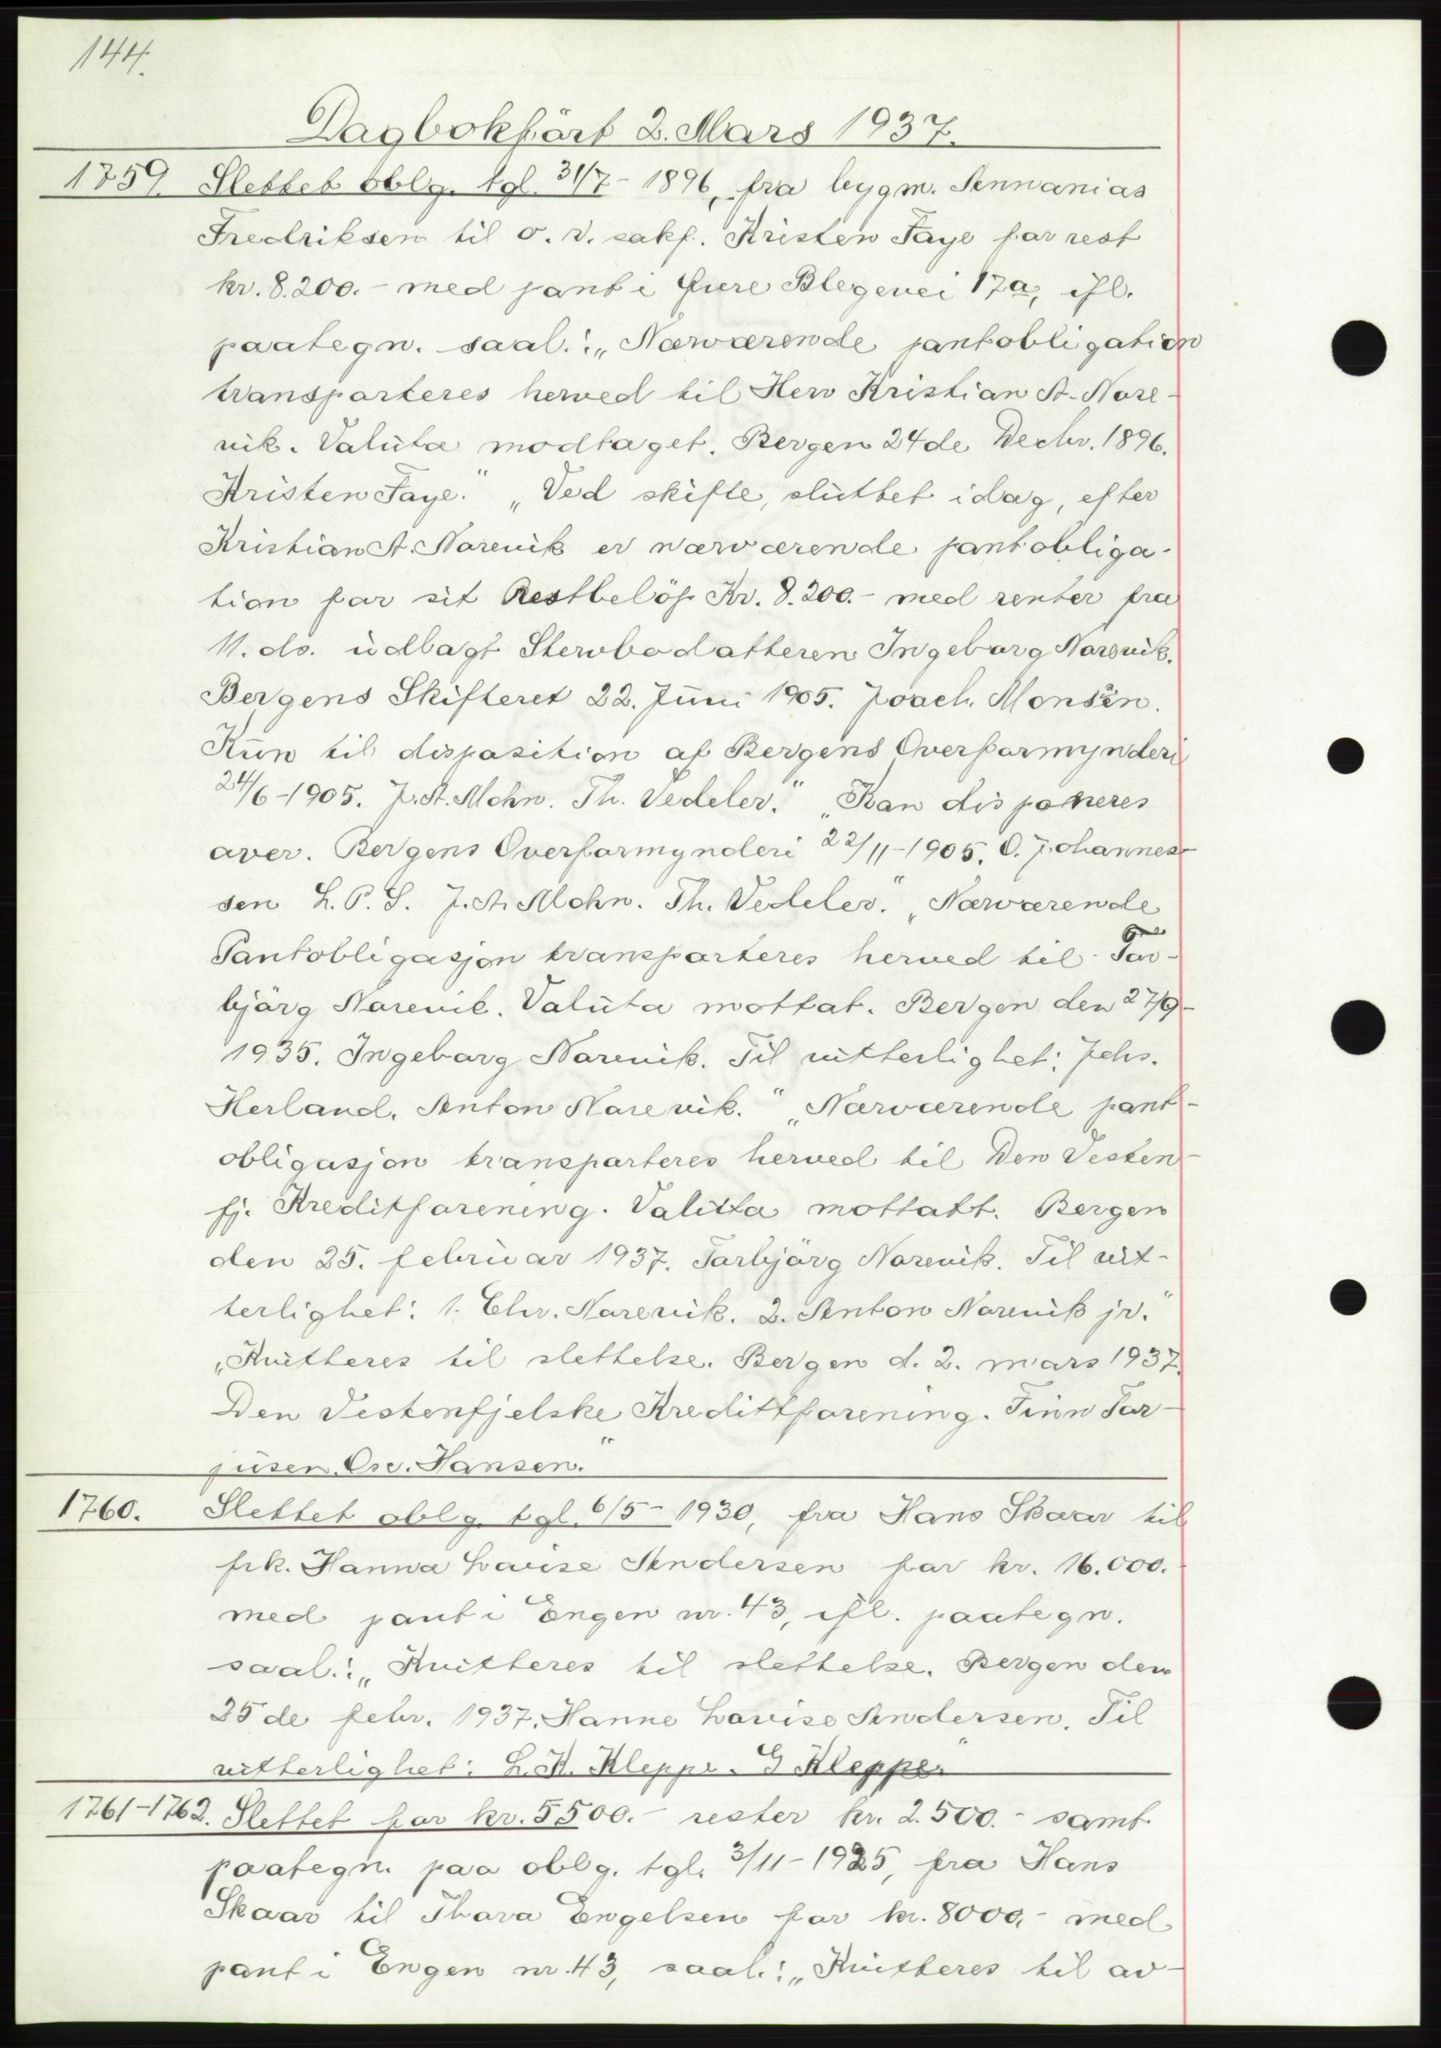 144.
Dagbokført 2. Mars 1937.
1759. Slettet oblg. tgl. 31/7- 1896, fra bygm. Annanias
Fredriksen til o. r. sakf. Kristen Faye for rest
kr. 8.200.- med pant i Øvre Blegevei 17a, ifl.
paategn. saal.: „Nærværende pantobligation
transporteres herved til Herr Kristian A. Nore-
vik. Valuta modtaget. Bergen 24de Decbr. 1896.
Kristen Faye." „Ved skifte, sluttet idag, efter
Kristian A. Norevik er nærværende pantobliga-
tion for sit Restbeløp Kr. 8.200.- med renter fra
11. ds. udlagt Stervbodatteren Ingeborg Norevik.
Bergens Skifteret 22. Juni 1905. Joach. Monsen.
Kun til disposition af Bergens Overformynderi
24/6-1905. J. A. Mohn. Th. Vedeler." „Kan disponeres
over. Bergens Overformynderi 22/11-1905. O. Johannes-
sen L. P. S. J. A. Mohn. Th. Vedeler." „Nærværende
Pantobligasjon transporteres herved til Tor-
bjørg Norevik. Valuta mottat. Bergen den 27/9-
1935. Ingeborg Norevik. Til vitterlighet: Johs.
Herland. Anton Norevik." „Nærværende pant-
obligasjon transporteres herved til Den Vesten-
fj. Kreditforening. Valuta mottatt. Bergen
den 25. februar 1937. Torbjørg Norevik. Til vit-
terlighet: 1. Chr. Norevik. 2. Anton Norevik jr."
„Kvitteres til slettelse. Bergen d. 2. mars 1937.
Den Vestenfjelske Kredittforening. Finn Tor-
jusen. Osc. Hansen."
1760. Slettet oblg. tgl. 6/5- 1930, fra Hans Skaar til
frk. Hanna Lovise Andersen for kr. 16.000.
med pant i Engen nr. 43, ifl. paategn.
saal.: „Kvitteres til slettelse. Bergen den
25de febr. 1937. Hanne Lovise Andersen. Til
vitterlighet: L. K. Kleppe. G Kleppe."
1761-1762. Slettet for kr. 5500.- rester kr. 2.500.- samt
paategn. paa oblg. tgl. 3/11-1925, fra Hans
Skaar til Thora Engelsen for kr. 8000,- med
pant i Engen nr. 43, saal.: „Kvitteres til av-